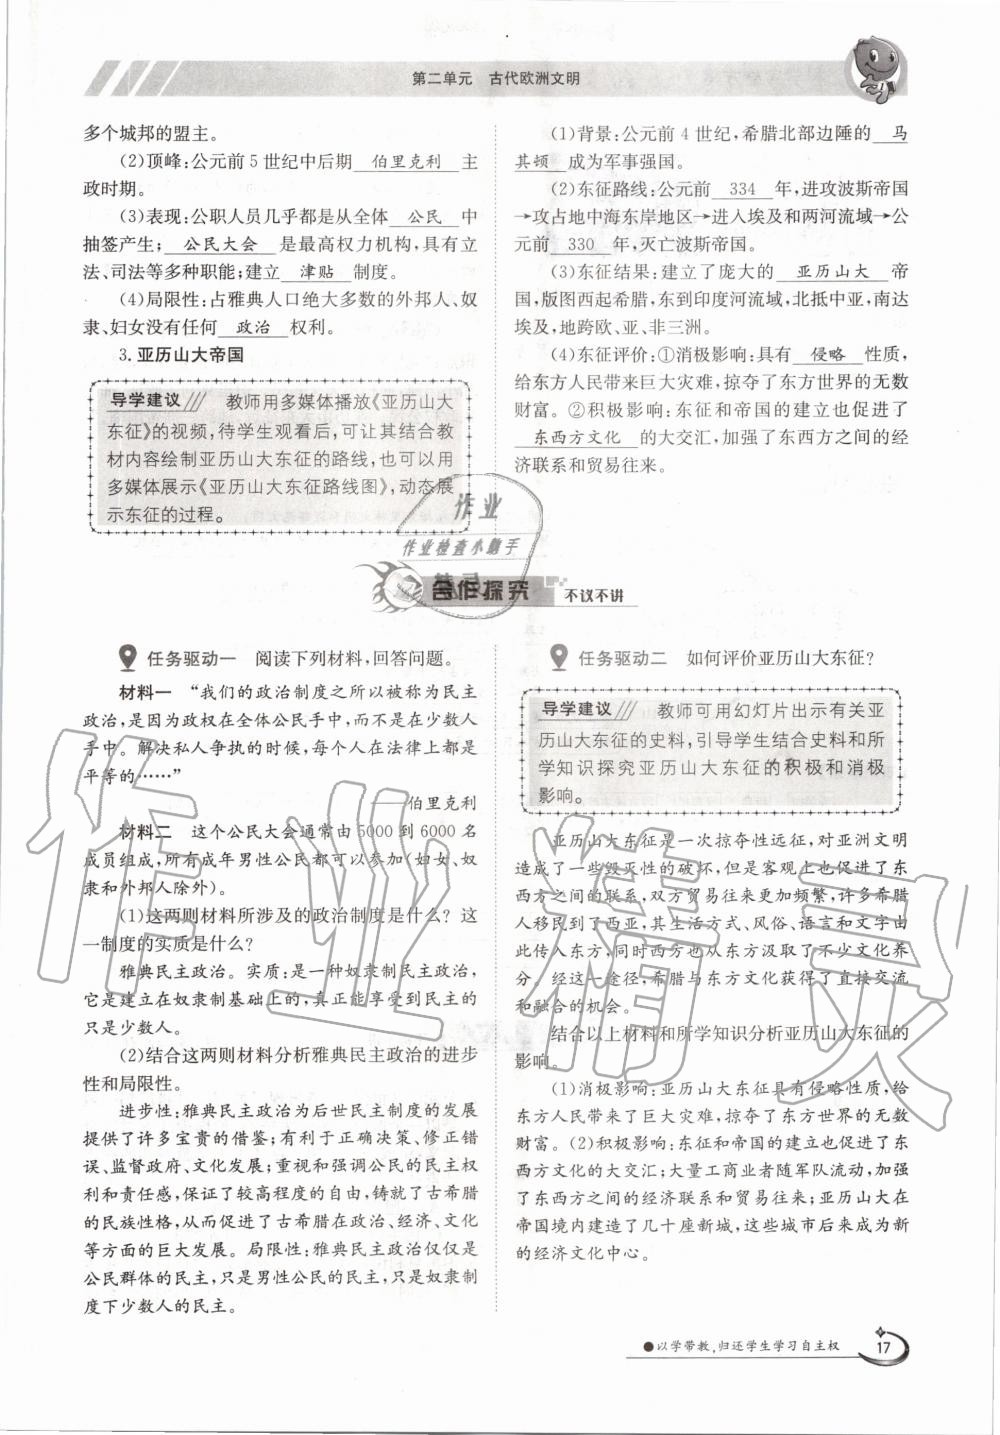 第二单元　古代欧洲文明
多个城邦的盟主。
(2)顶峰:公元前5世纪中后期 伯里克利 主
政时期。
(3)表现:公职人员几乎都是从全体 公民 中
抽签产生; 公民大会 是最高权力机构,具有立
法、司法等多种职能;建立 津贴 制度。
(4)局限性:占雅典人口绝大多数的外邦人、奴
隶、妇女没有任何 政治 权利。
3. 亚历山大帝国
导学建议 教师用多媒体播放《亚历山大
东征》的视频,待学生观看后,可让其结合教
材内容绘制亚历山大东征的路线,也可以用
多媒体展示《亚历山大东征路线图》,动态展
示东征的过程。
(1)背景:公元前4世纪,希腊北部边陲的 马
其顿 成为军事强国。
(2)东征路线:公元前 334 年,进攻波斯帝国
→攻占地中海东岸地区→进入埃及和两河流域→公
元前 330 年,灭亡波斯帝国。
(3)东征结果:建立了庞大的 亚历山大 帝
国,版图西起希腊,东到印度河流域,北抵中亚,南达
埃及,地跨欧、亚、非三洲。
(4)东征评价:①消极影响:具有 侵略 性质,
给东方人民带来巨大灾难,掠夺了东方世界的无数
财富。②积极影响:东征和帝国的建立也促进了
东西方文化 的大交汇,加强了东西方之间的经
济联系和贸易往来。
作业
作业检查小助手
合作探究 不议不讲
任务驱动一 阅读下列材料,回答问题。
材料一 “我们的政治制度之所以被称为民主
政治,是因为政权在全体公民手中,而不是在少数人
手中。解决私人争执的时候,每个人在法律上都是
平等的……”
——伯里克利
材料二 这个公民大会通常由5000到6000名
成员组成,所有成年男性公民都可以参加(妇女、奴
隶和外邦人除外)。
(1)这两则材料所涉及的政治制度是什么?这
一制度的实质是什么?
雅典民主政治。实质:是一种奴隶制民主政治,
它是建立在奴隶制基础上的,真正能享受到民主的
只是少数人。
(2)结合这两则材料分析雅典民主政治的进步
性和局限性。
进步性:雅典民主政治为后世民主制度的发展
提供了许多宝贵的借鉴;有利于正确决策、修正错
误、监督政府、文化发展;重视和强调公民的民主权
利和责任感,保证了较高程度的自由,铸就了古希腊
的民族性格,从而促进了古希腊在政治、经济、文化
等方面的巨大发展。局限性:雅典民主政治仅仅是
公民群体的民主,只是男性公民的民主,只是奴隶制
度下少数人的民主。
任务驱动二 如何评价亚历山大东征?
导学建议 教师可用幻灯片出示有关亚
历山大东征的史料,引导学生结合史料和所
学知识探究亚历山大东征的积极和消极
影响。
亚历山大东征是一次掠夺性远征,对亚洲文明
造成了一些毁灭性的破坏,但是客观上也促进了东
西方之间的联系,双方贸易往来更加频繁,许多希腊
人移民到了西亚,其生活方式、风俗、语言和文字由
此传入东方,同时西方也从东方汲取了不少文化养
分。经这一途径,希腊与东方文化获得了直接交流
和融合的机会。
结合以上材料和所学知识分析亚历山大东征的
影响。
(1)消极影响:亚历山大东征具有侵略性质,给
东方人民带来了巨大灾难,掠夺了东方世界的无数
财富。(2)积极影响:东征和帝国的建立也促进了东
西方文化的大交汇;大量工商业者随军队流动,加强
了东西方之间的经济联系和贸易往来;亚历山大在
帝国境内建造了几十座新城,这些城市后来成为新
的经济文化中心。
作业精灵
●以学带教,归还学生学习自主权
17